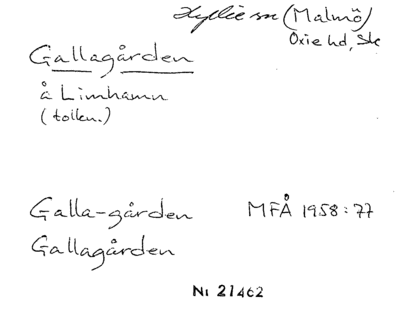 Hyllie sn (Malmö)
Oxie hd, Sk
Gallagården
å Limhamn
(tolkn.)
Galla-gården MFÅ 1958:77
Gallagården
Ni 21462